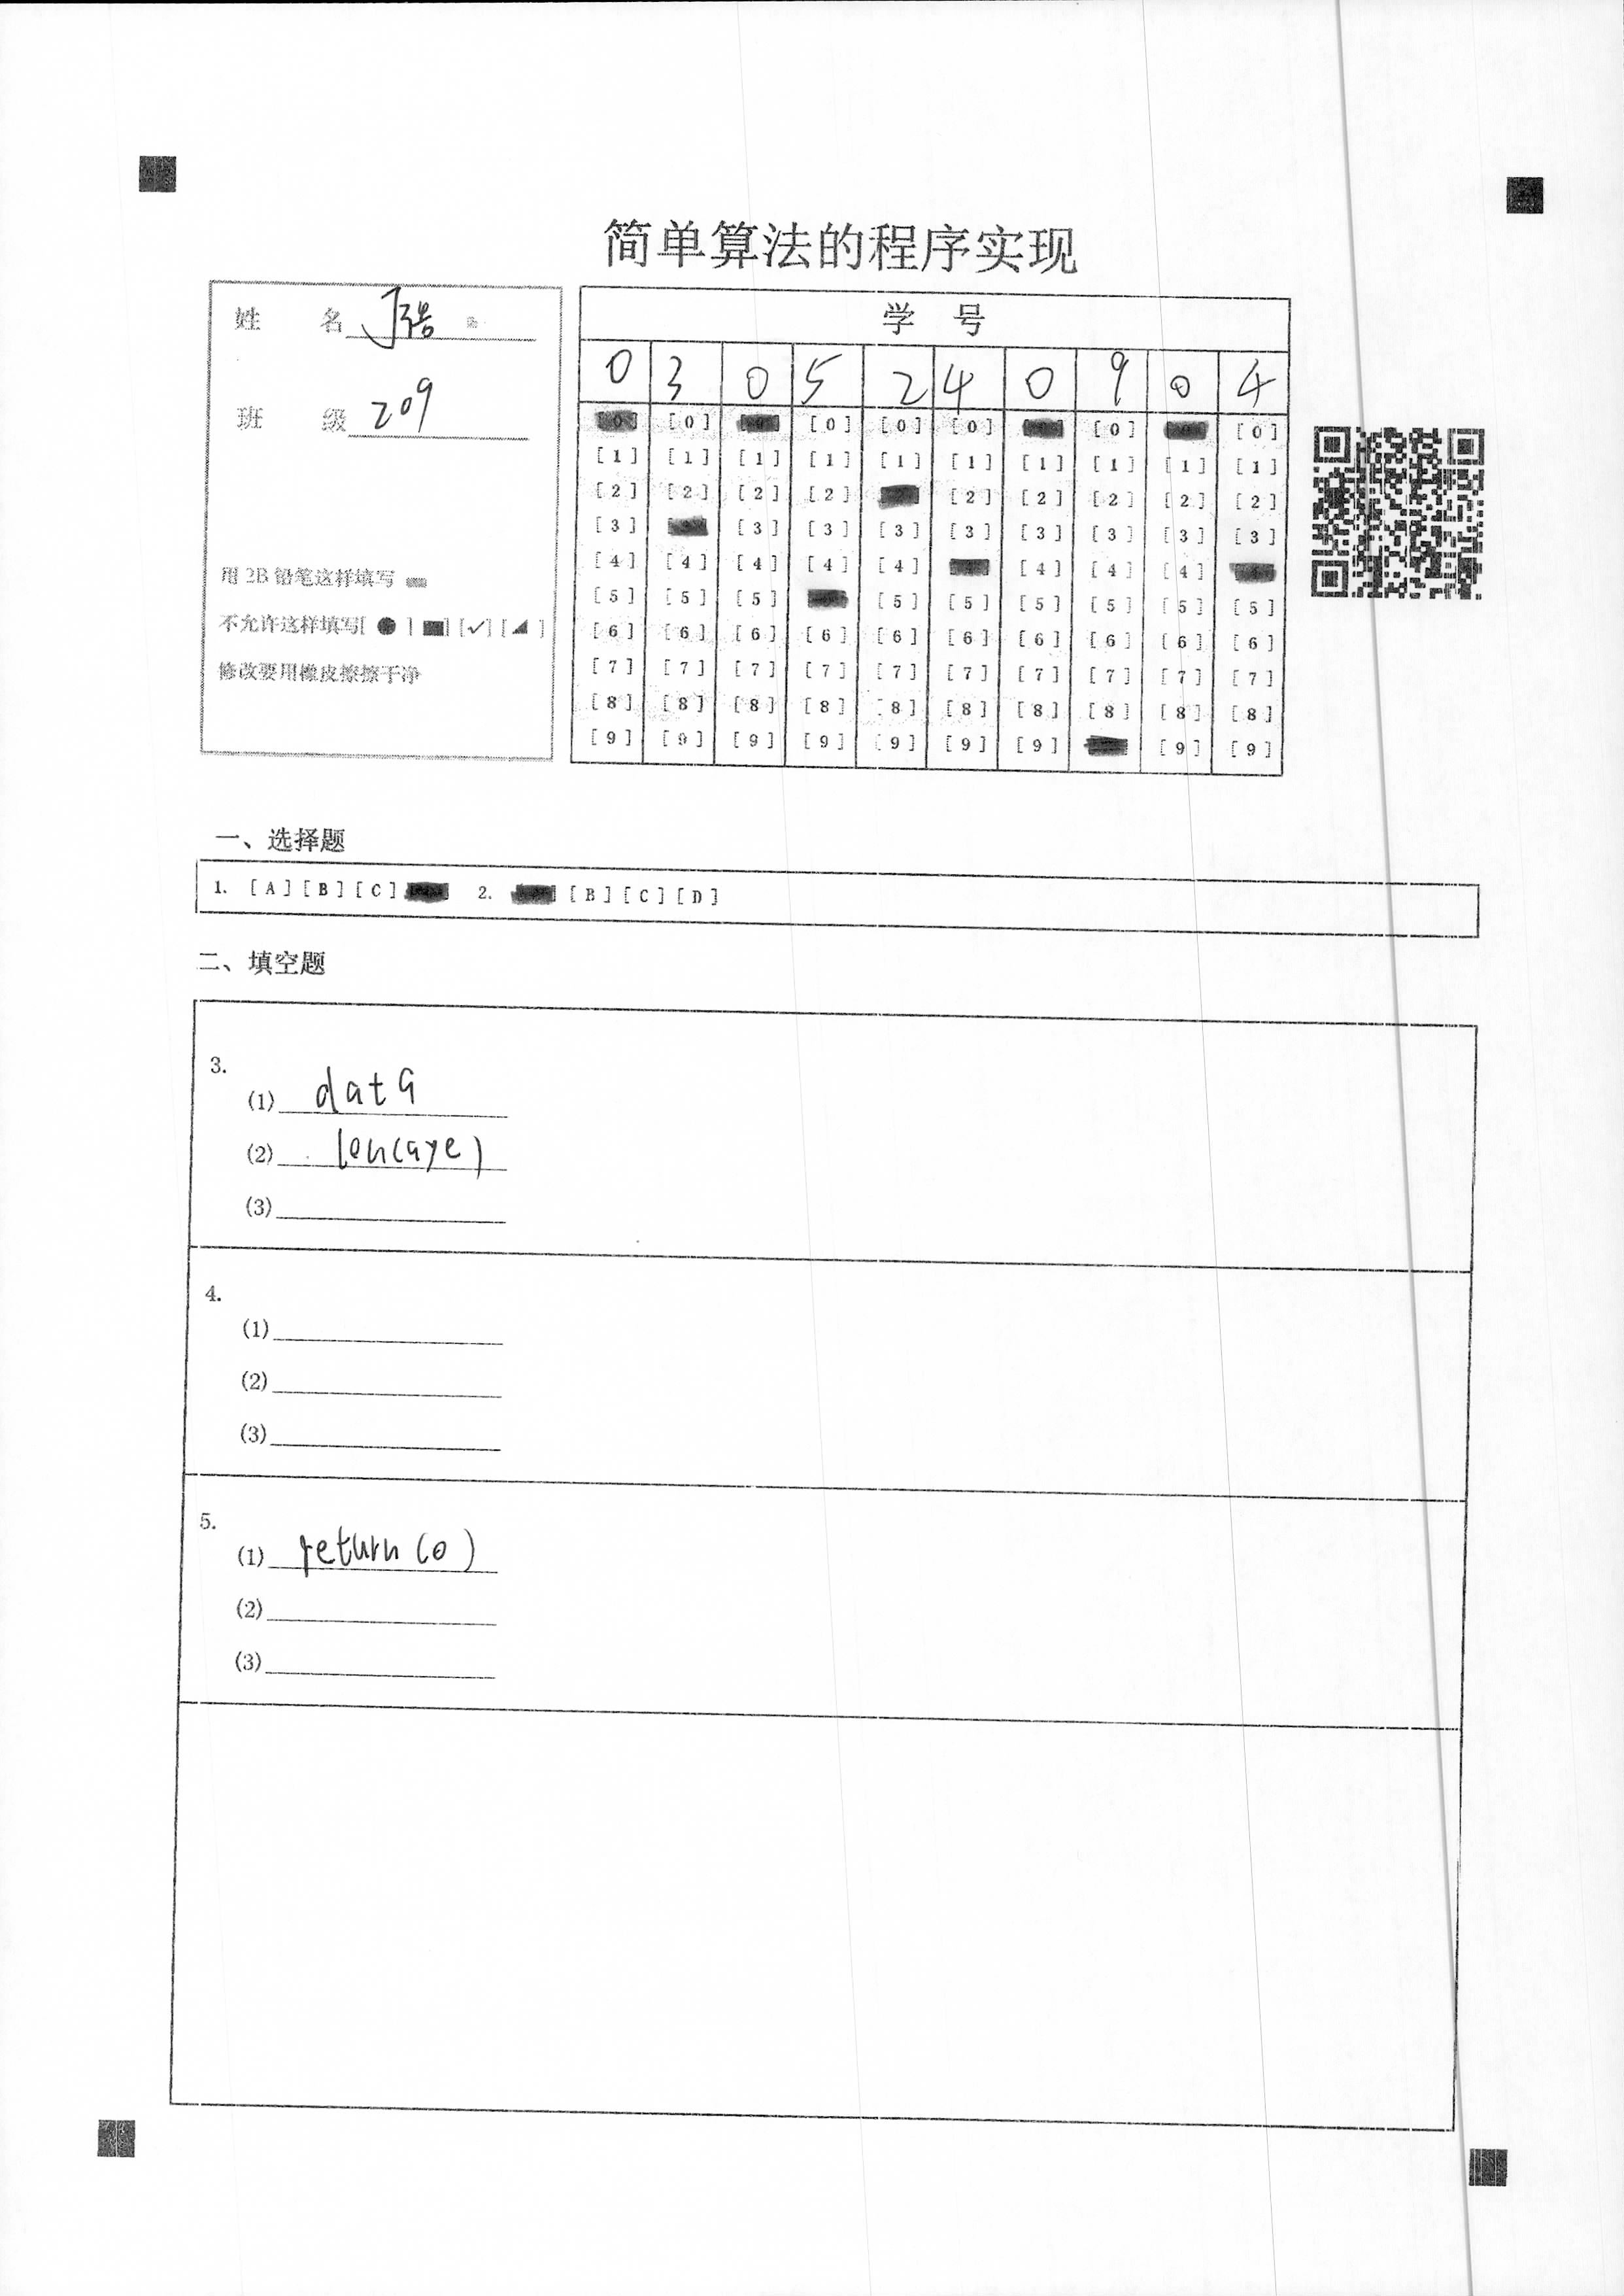 简单算法的程序实现
姓 名
班 级 209
用 2B 铅笔这样填写
不允许这样填写[ ● ] [■] [✓] [◢ ]
修改要用橡皮擦擦干净
学 号
0 3 0 5 2 4 0 9 0 4
[0] [0] [0] [0] [0] [0]
[1] [1] [1] [1] [1] [1] [1] [1] [1] [1]
[2] [2] [2] [2] [2] [2] [2] [2] [2]
[3] [3] [3] [3] [3] [3] [3] [3] [3]
[4] [4] [4] [4] [4] [4] [4] [4]
[5] [5] [5] [5] [5] [5] [5] [5] [5]
[6] [6] [6] [6] [6] [6] [6] [6] [6] [6]
[7] [7] [7] [7] [7] [7] [7] [7] [7] [7]
[8] [8] [8] [8] [8] [8] [8] [8] [8] [8]
[9] [9] [9] [9] [9] [9] [9] [9] [9]
一、选择题
1. [A] [B] [C] 2. [B] [C] [D]
二、填空题
3.
(1) data
(2) len(aye)
(3)
4.
(1)
(2)
(3)
5.
(1) return(0)
(2)
(3)